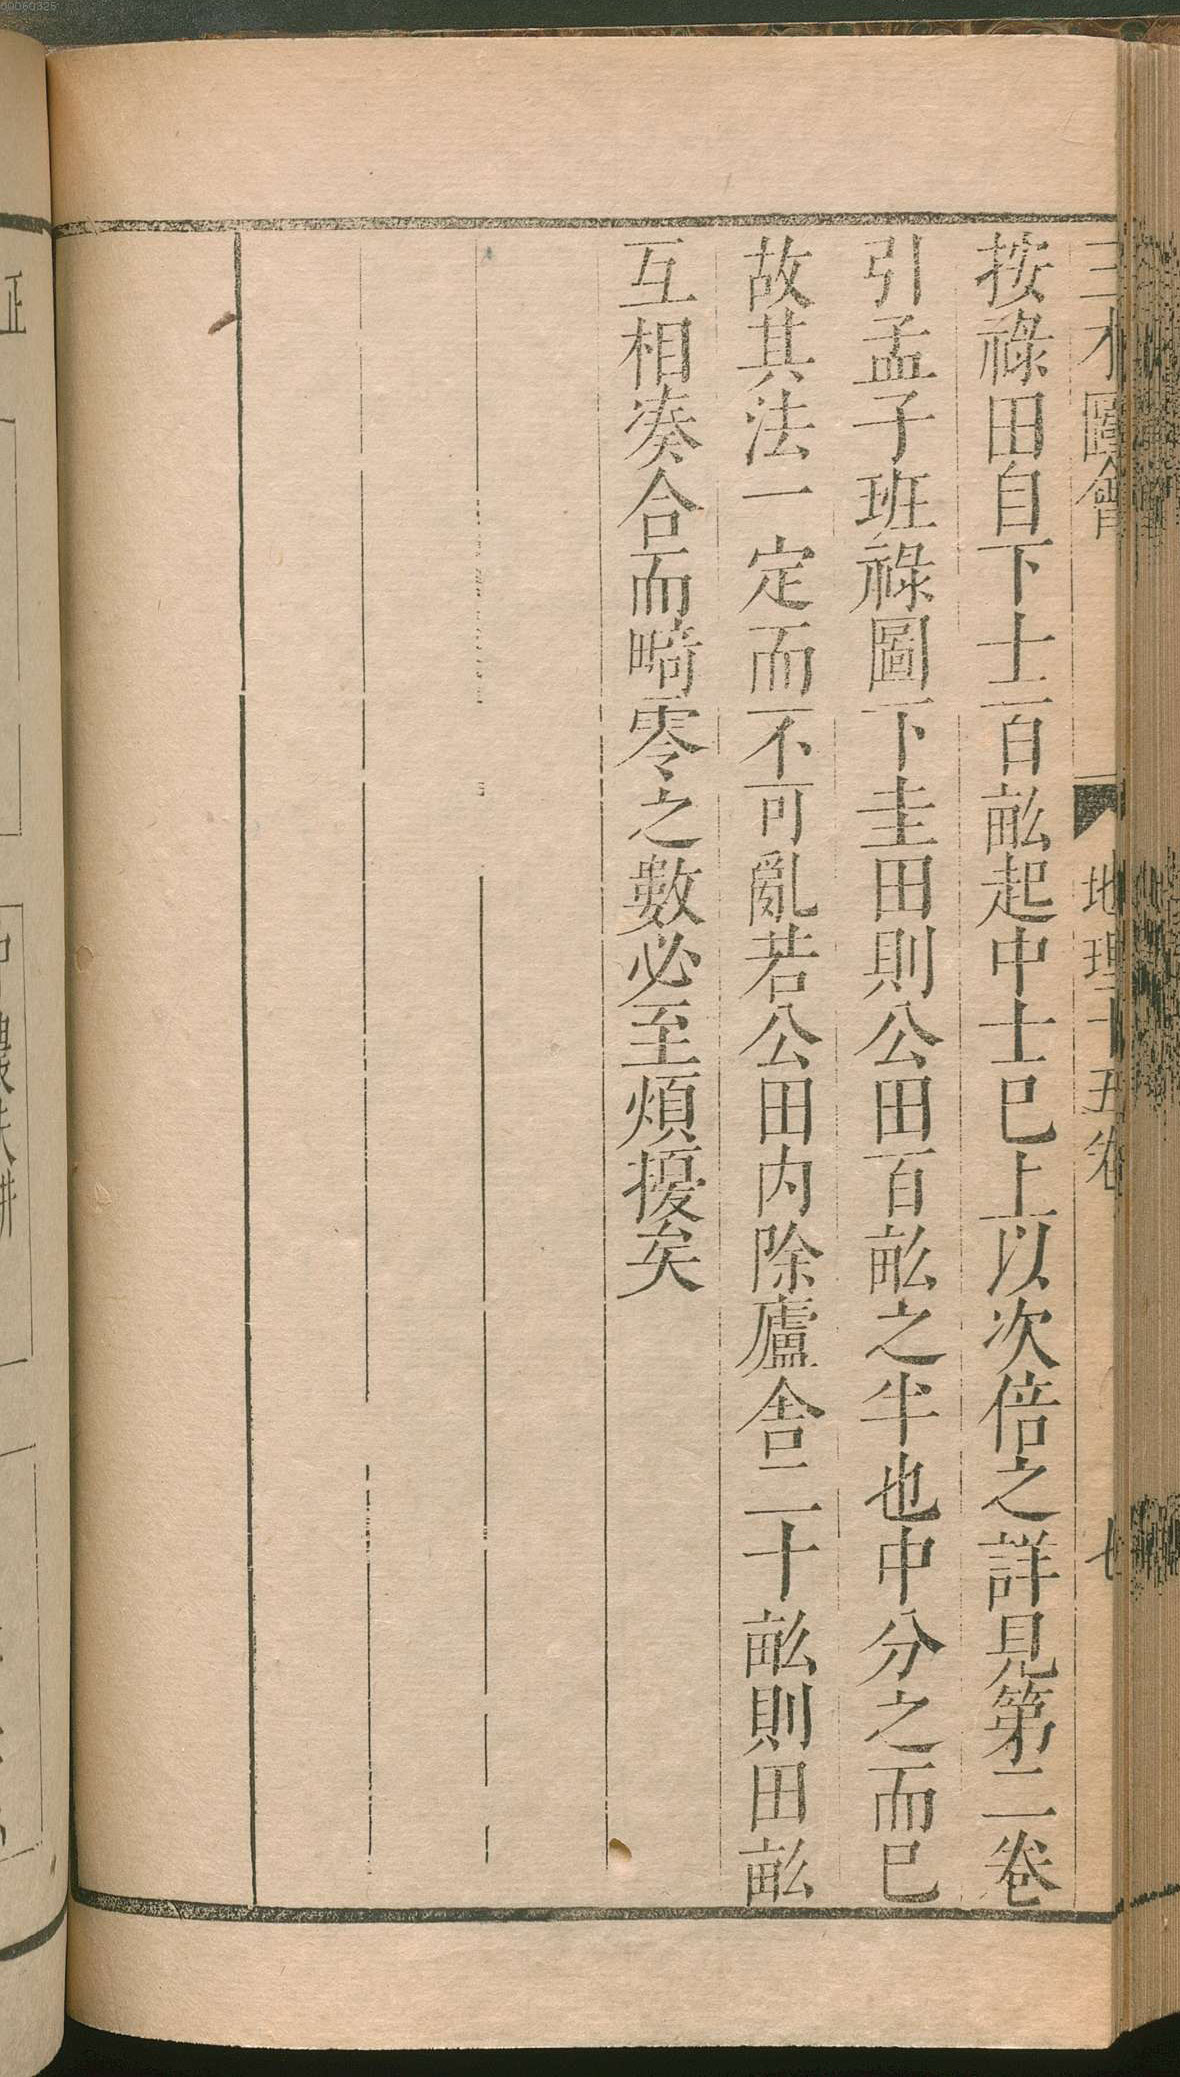 三才圖會 地理十五卷 七
按祿田自下士百畝起中士巳上以次倍之詳見第二卷
引孟子班祿圖下圭田則公田百畝之半也中分之而巳
故其法一定而不可亂若公田内除廬舎二十畝則田畝
互相凑合而畸零之數必至煩擾矣
正
00060325